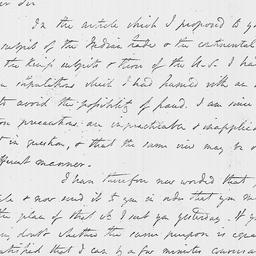 Sir
In the article which I proposed to y
subjects of the Indian trade & the continental
the King's subjects & those of the U.S. I ha
stipulations which I had framed with an
to avoid the possibility of fraud. I am
precautions are impracticable & inapplic
in question, & that the same view may be
different manner.
I have therefore new worded that
& now send it to you in order that you m
the place of that wh. I sent you yesterday. If y
any doubt whether the same purpose is equa
satisfied that I can by a few minutes conversa